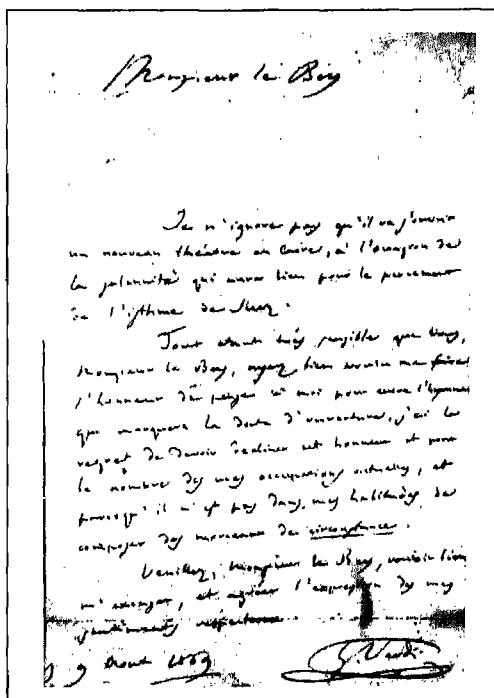 Monsieur le Bey
Je n'ignore pas qu'il va s'ouvrir
un nouveau théâtre au Caire, à l'occasion de
la solennité qui aura lieu pour le percement
de l'isthme de Suez.
Tout étant très sensible que Vous,
Monsieur le Bey, ayez bien voulu me faire
l'honneur de penser à moi pour l'hymne
qui marquera la date d'ouverture, j'ai le
regret de devoir décliner cet honneur et pour
le nombre des mes occupations actuelles, et
parcequ'il n'est pas dans mes habitudes de
composer des morceaux de circonstance.
Veuillez, Monsieur le Bey, vouloir bien
m'excuser, et agréer l'expression des mes
sentiments
9 Août 1869 G. Verdi